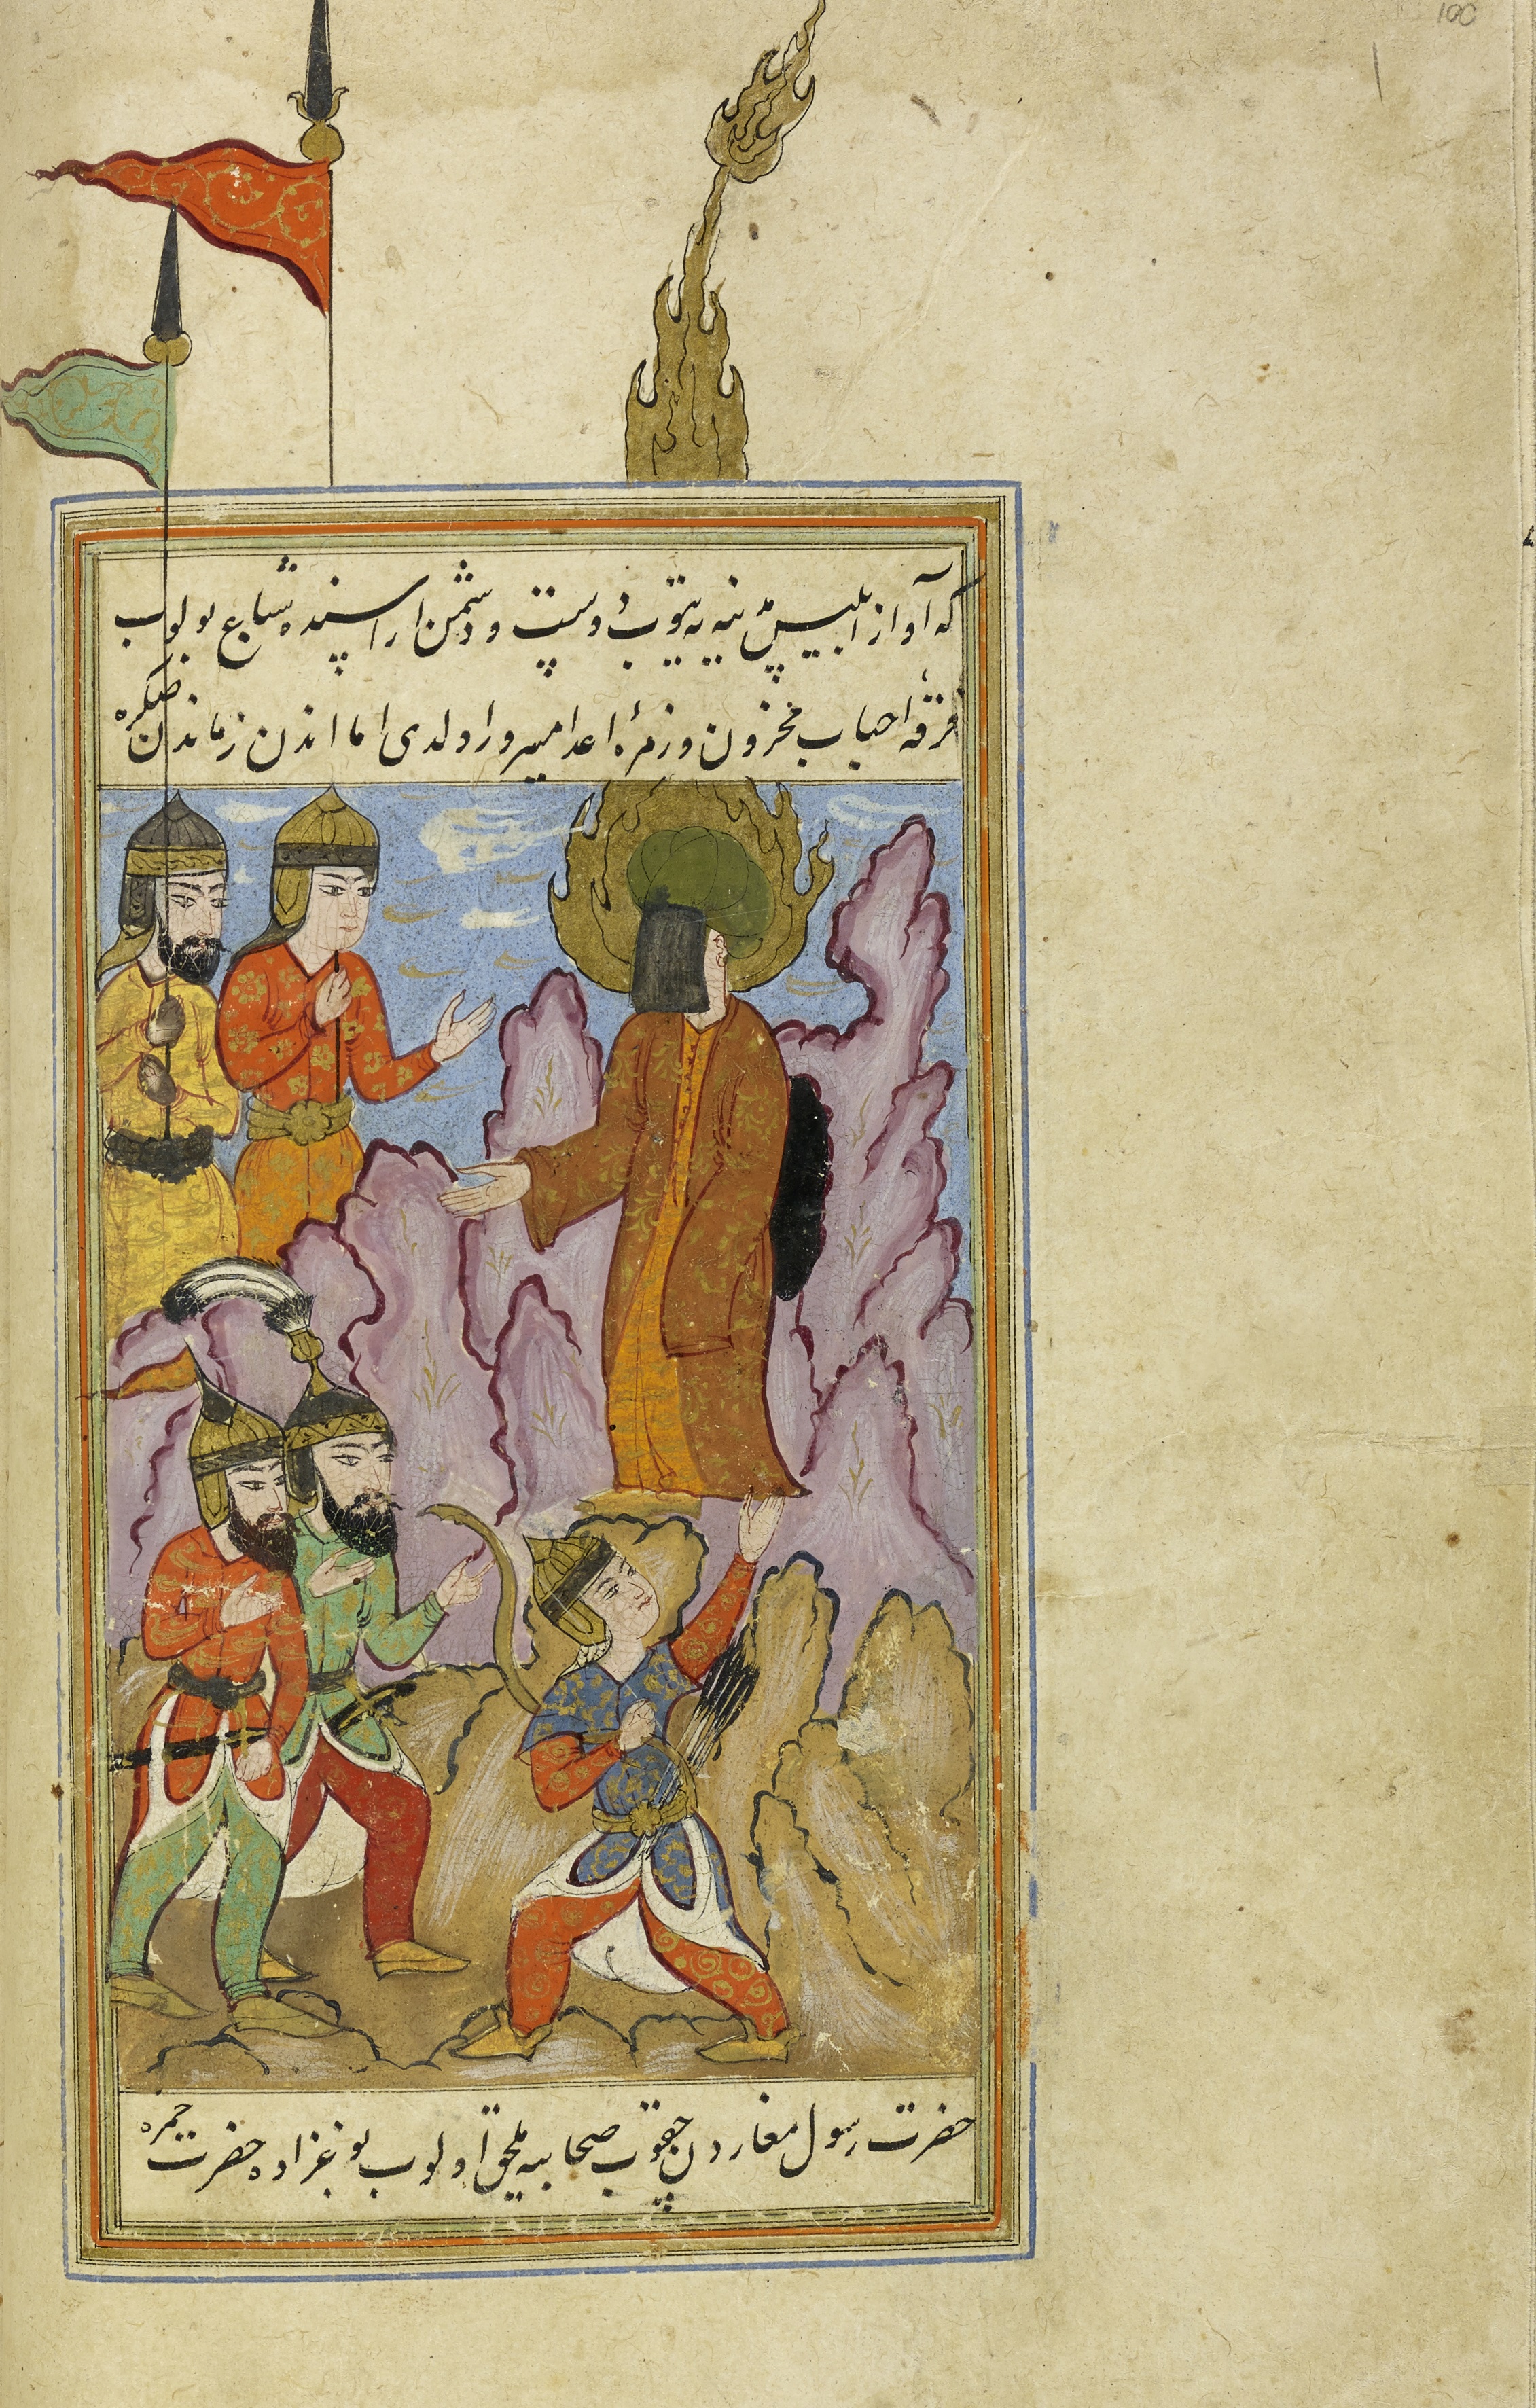 100
که آواز ابلیس پر مدینه یه یتوب دوست و دشمن اراسنده شایع بولوب
فرقهٔ احباب محزون و زمرهٔ اعدا مسرور اولدی اما اندن زماندن صکره
حضرت رسول مغاردن چقوب صحابیه ملحق اولوب بو غزاده حضرت حمزه